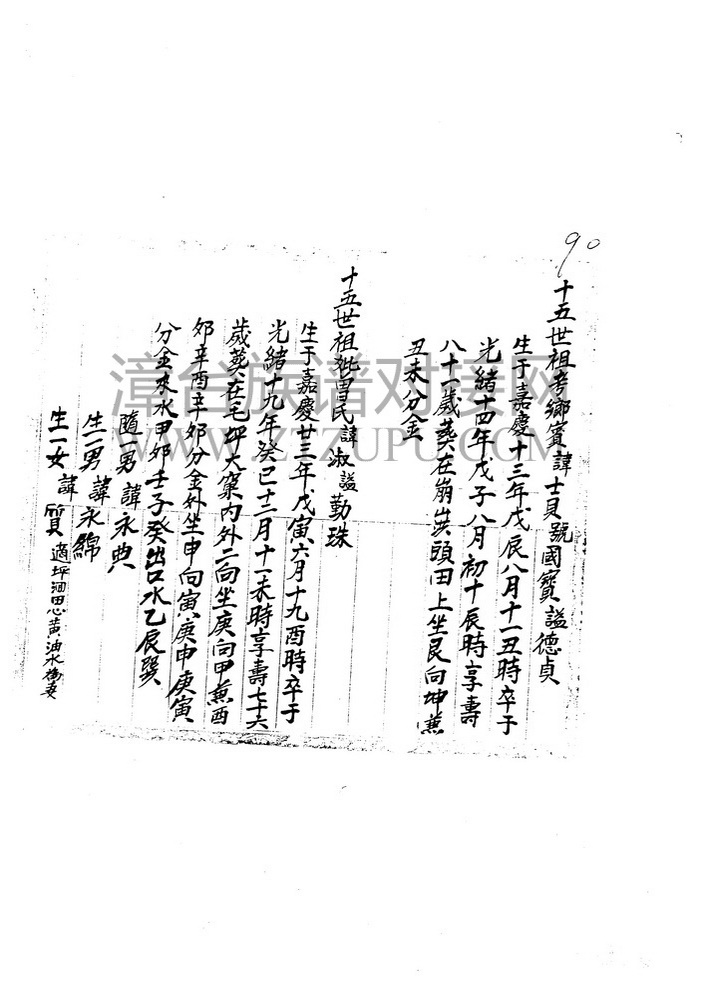 90
十五世祖考鄉賓諱士貝號國寶謚德貞
生于嘉慶十三年戊辰八月十一丑時卒于
光緒十四年戊子八月初十辰時享壽
八十一歲葬在崩崁頭田上坐艮向坤兼
丑未分金
十五世祖妣曾氏諱淑謚勤珠
生于嘉慶廿三年戊寅六月十九酉時卒于
光緒十九年癸巳十二月十一未時享壽七十六
歲葬在毛坪大窠內外二向坐庚向甲兼酉
卯辛酉辛卯分金外坐申向寅庚申庚寅
分金來水甲卯壬子癸出口水乙辰巽
隨一男諱永典
生一男諱永綿
生一女諱質適坪洄思黃油水為妻
漳台族谱对接网
WWW.ZTZUPU.COM